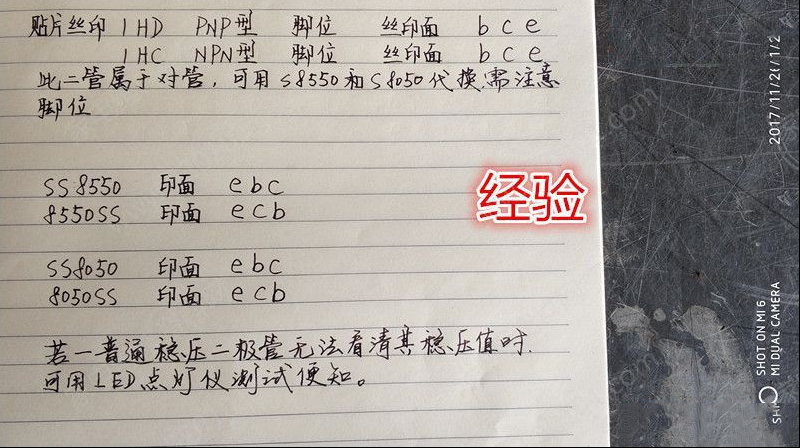 贴片丝印 1HD PNP型 脚位 丝印面 b c e
1HC NPN型 脚位 丝印面 b c e
此二管属于对管，可用S8550和S8050代换.需注意
脚位
SS8550 印面 e b c
8550SS 印面 e c b
经验
SS8050 印面 e b c
8050SS 印面 e c b
若一普通稳压二极管无法看清其稳压值时.
可用LED点灯仪测试便知。
2017/11/26/1/2
SHOT ON MI 6
MI DUAL CAMERA